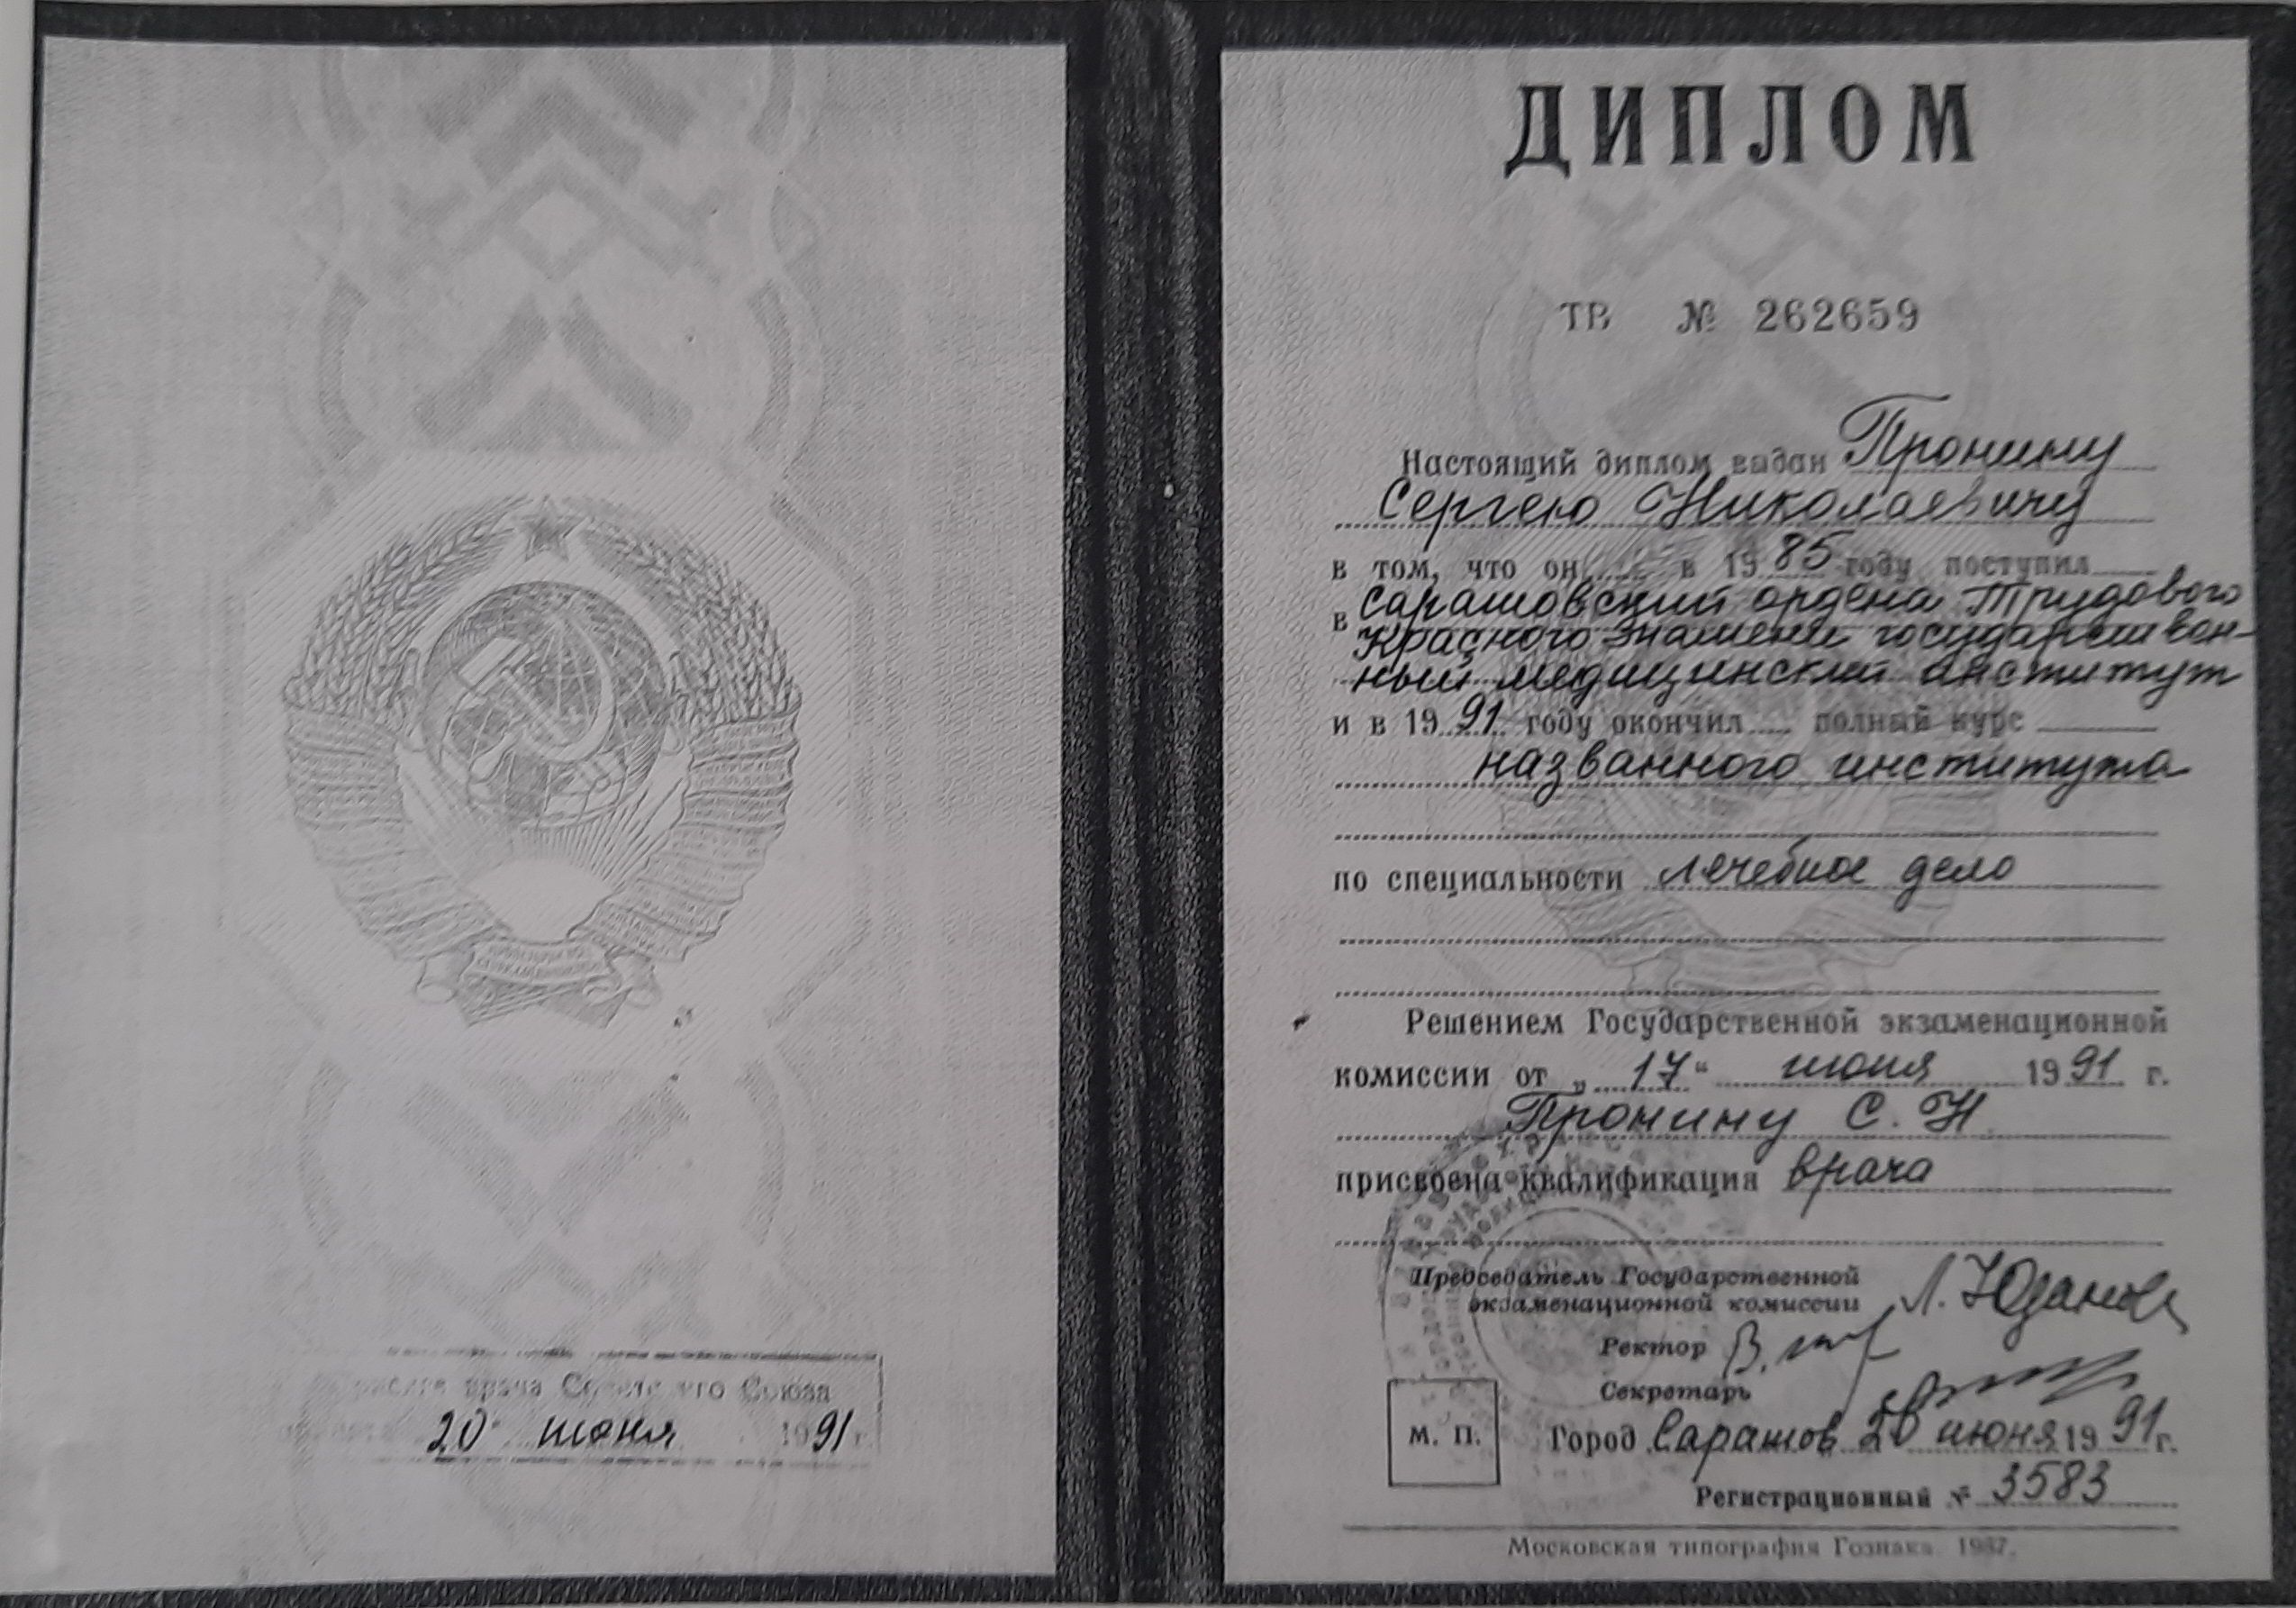 врача Советского Союза
20 июня 1991 г.
ДИПЛОМ
ТВ № 262659
Настоящий диплом выдан Пронину
Сергею Николаевичу
в том, что он в 1985 году поступил
в Саратовский ордена Трудового
Красного Знамени государствен-
ный медицинский институт
и в 1991 году окончил полный курс
названного института
по специальности лечебное дело
Решением Государственной экзаменационной
комиссии от „17“ июня 1991 г.
Пронину С. Н.
присвоена квалификация врача
Председатель Государственной
экзаменационной комиссии
Ректор
Секретарь
М. П.
Город Саратов 20 июня 1991 г.
Регистрационный № 3583
Московская типография Гознака. 1987.